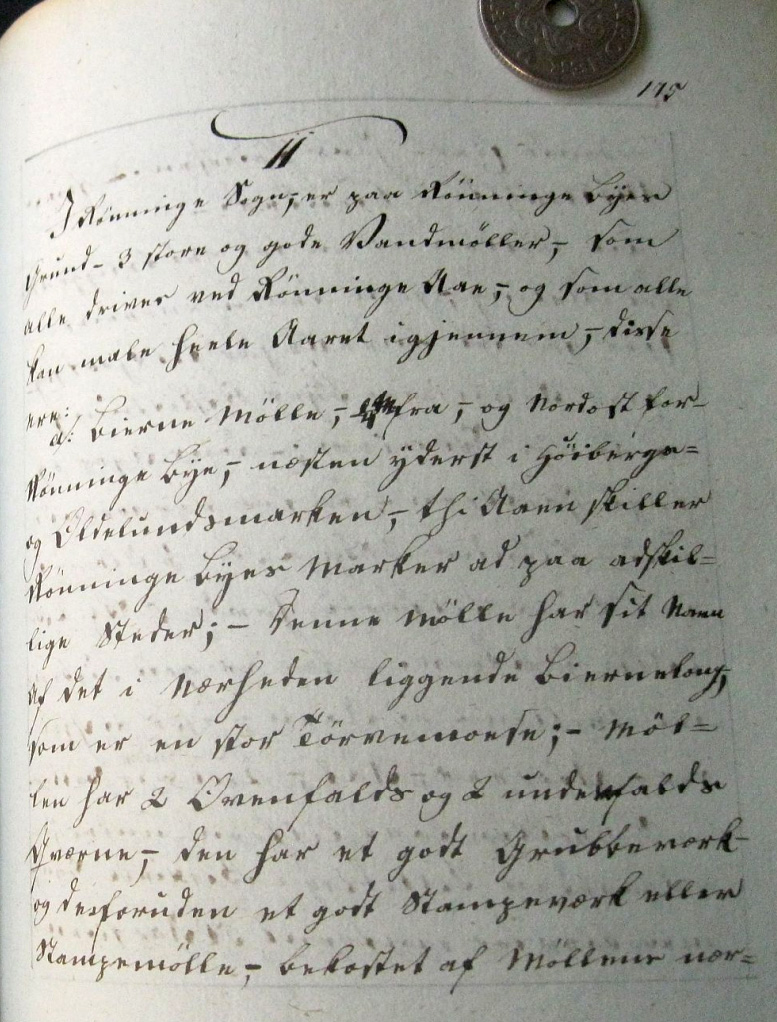 175
11
I Rönninge Sogn, er paa Rönninge Byes
Grund - 3 store og gode Vandmöller, - som
alle drives ved Rönninge Aae, - og som alle
kan male heele Aaret igjennem, - disse
ere:
a: Bierne Mölle, - fra, - og Nordost for
Rönninge Bye, - næsten yderst i Höibergs=
og Oldelundsmarken, - thi Aaen skiller
Rönninge Byes Marker ad paa adskil=
lige Steder; - Denne Mölle har sit Navn
af det i Nærheden liggende Bierneland,
som er en stor Törvemoese; - Möl=
len har 2 Ovenfalds og 2 underfalds
Qværne, - den har et godt Grubbeværk
og desforuden et godt Stampeværk eller
Stampemölle, - bekostet af Möllens nær=